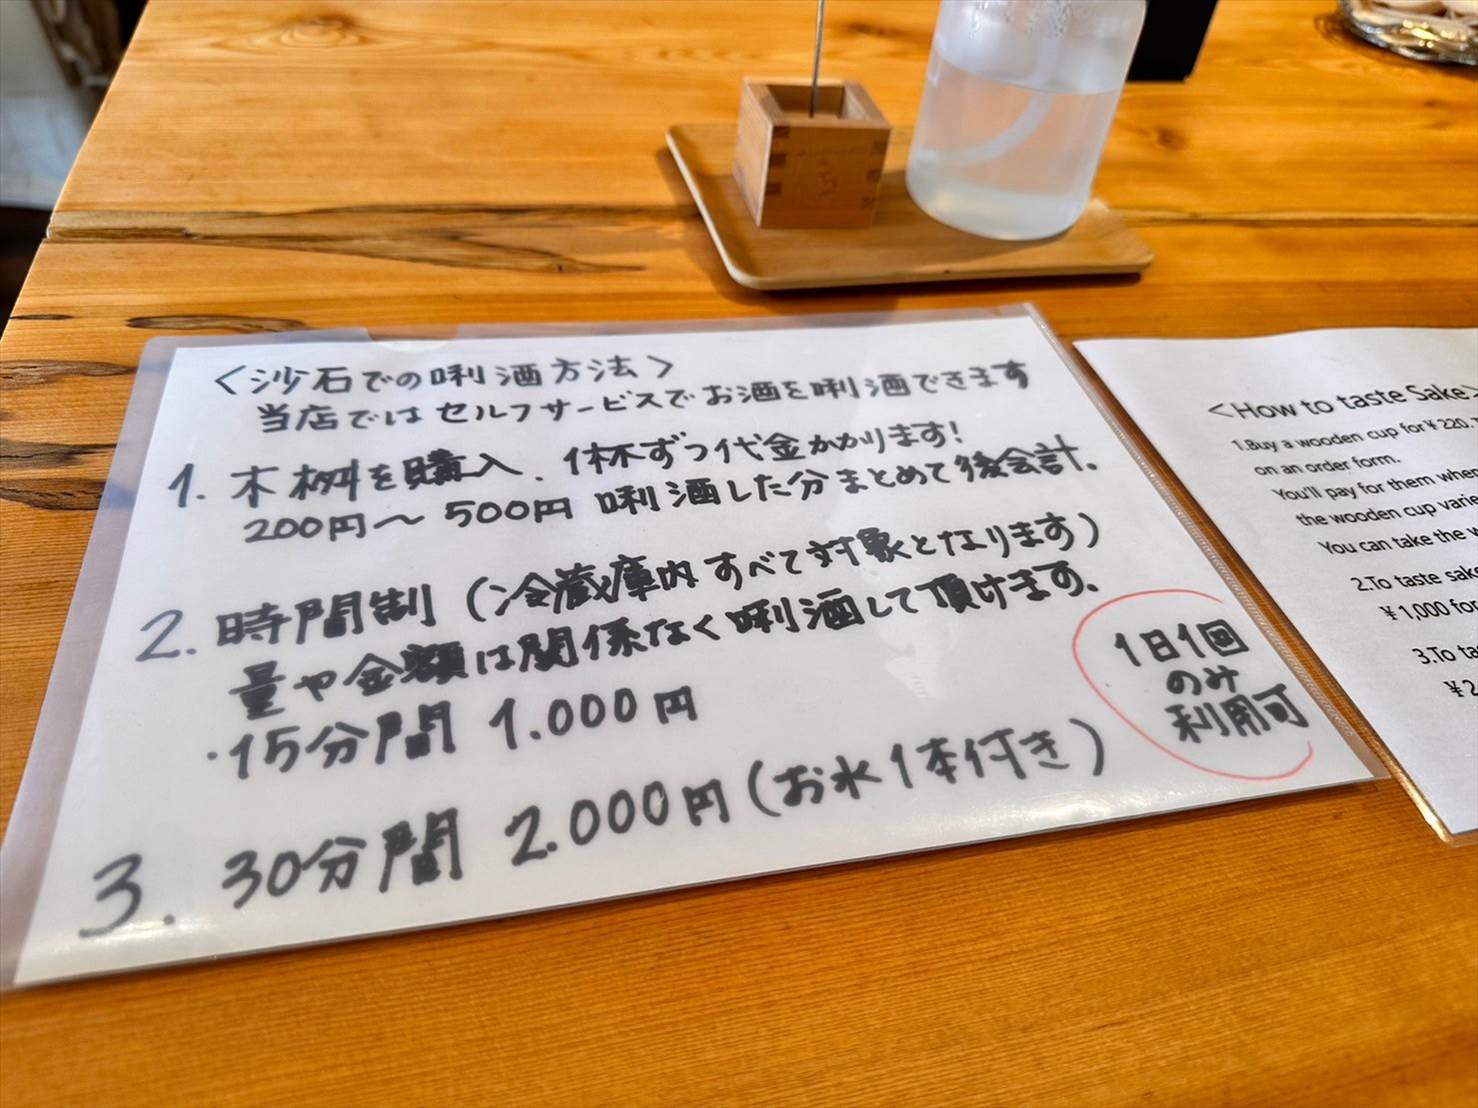 <沙石での唎酒方法>
当店ではセルフサービスでお酒を唎酒できます
1. 木桝を購入、1杯ずつ代金かかります!
200円〜500円 唎酒した分まとめて後会計。
2. 時間制 (冷蔵庫内すべて対象となります)
量や金額は関係なく唎酒して頂けます。
・15分間 1.000円
3. 30分間 2.000円 (お水1本付き)
1日1回
のみ
利用可
<How to taste Sake>
1.Buy a wooden cup for ¥220.
on an order form.
You'll pay for them when
the wooden cup
You can take the
2.To taste sake
¥1,000 for
3.To